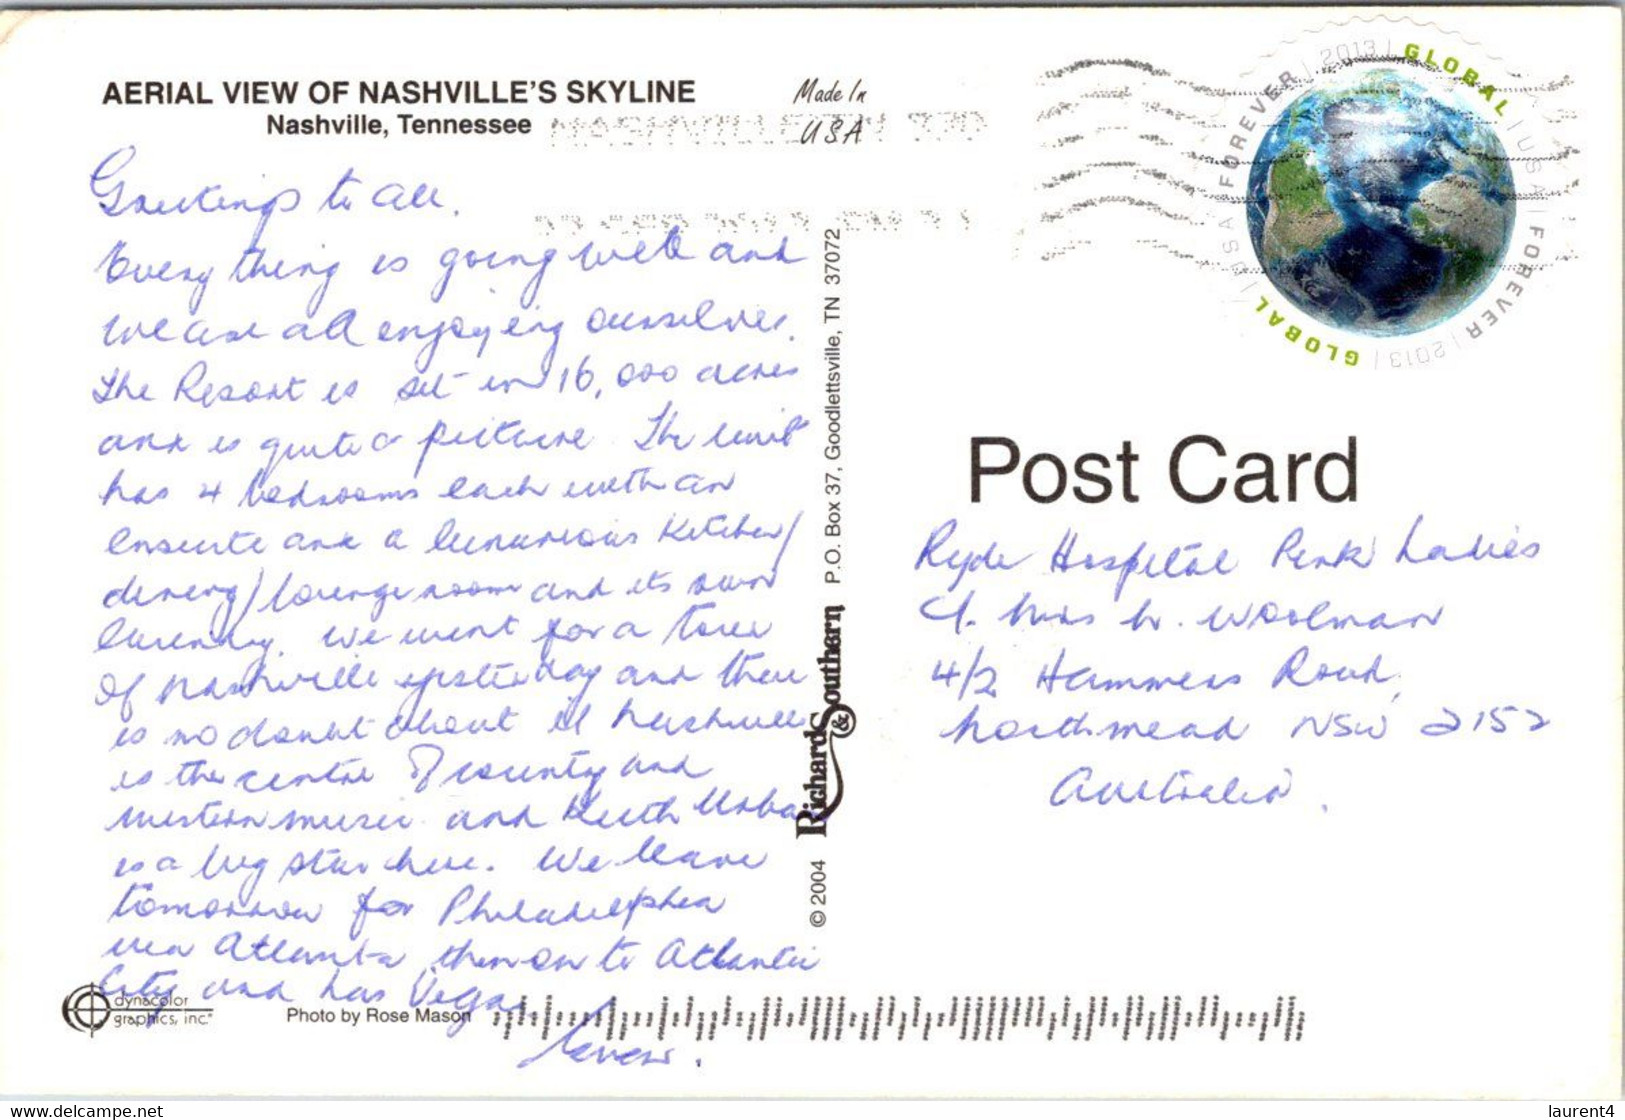 AERIAL VIEW OF NASHVILLE'S SKYLINE
Nashville, Tennessee
Made In
USA
NASHVILLE TN 370
GLOBAL | USA | FOREVER | 2013 | GLOBAL | USA FOREVER | 2013 |
Greetings to all.
Everything is going well and
we are all enjoying ourselves.
The Resort is set in 16,000 acres
and is quite a picture. The unit
has 4 bedrooms each with an
ensuite and a luxurious Kitchen/
dining/lounge room and its own
laundry. We went for a tour
of Nashville yesterday and there
is no doubt about it Nashville
is the centre of country and
western music and Keith Urban
is a big star here. We leave
tomorrow for Philadelphia
via Atlanta then on to Atlantic
City and Las Vegas.
Richard & Southern P.O. Box 37, Goodlettsville, TN 37072
© 2004
Post Card
Ryde Hospital Pink Ladies
C/- Mrs W. Woolman
4/2 Hammers Road,
Northmead NSW 2152
Australia.
dynacolor
graphics, inc.
Photo by Rose Mason
https://www.delcampe.net
laurent4